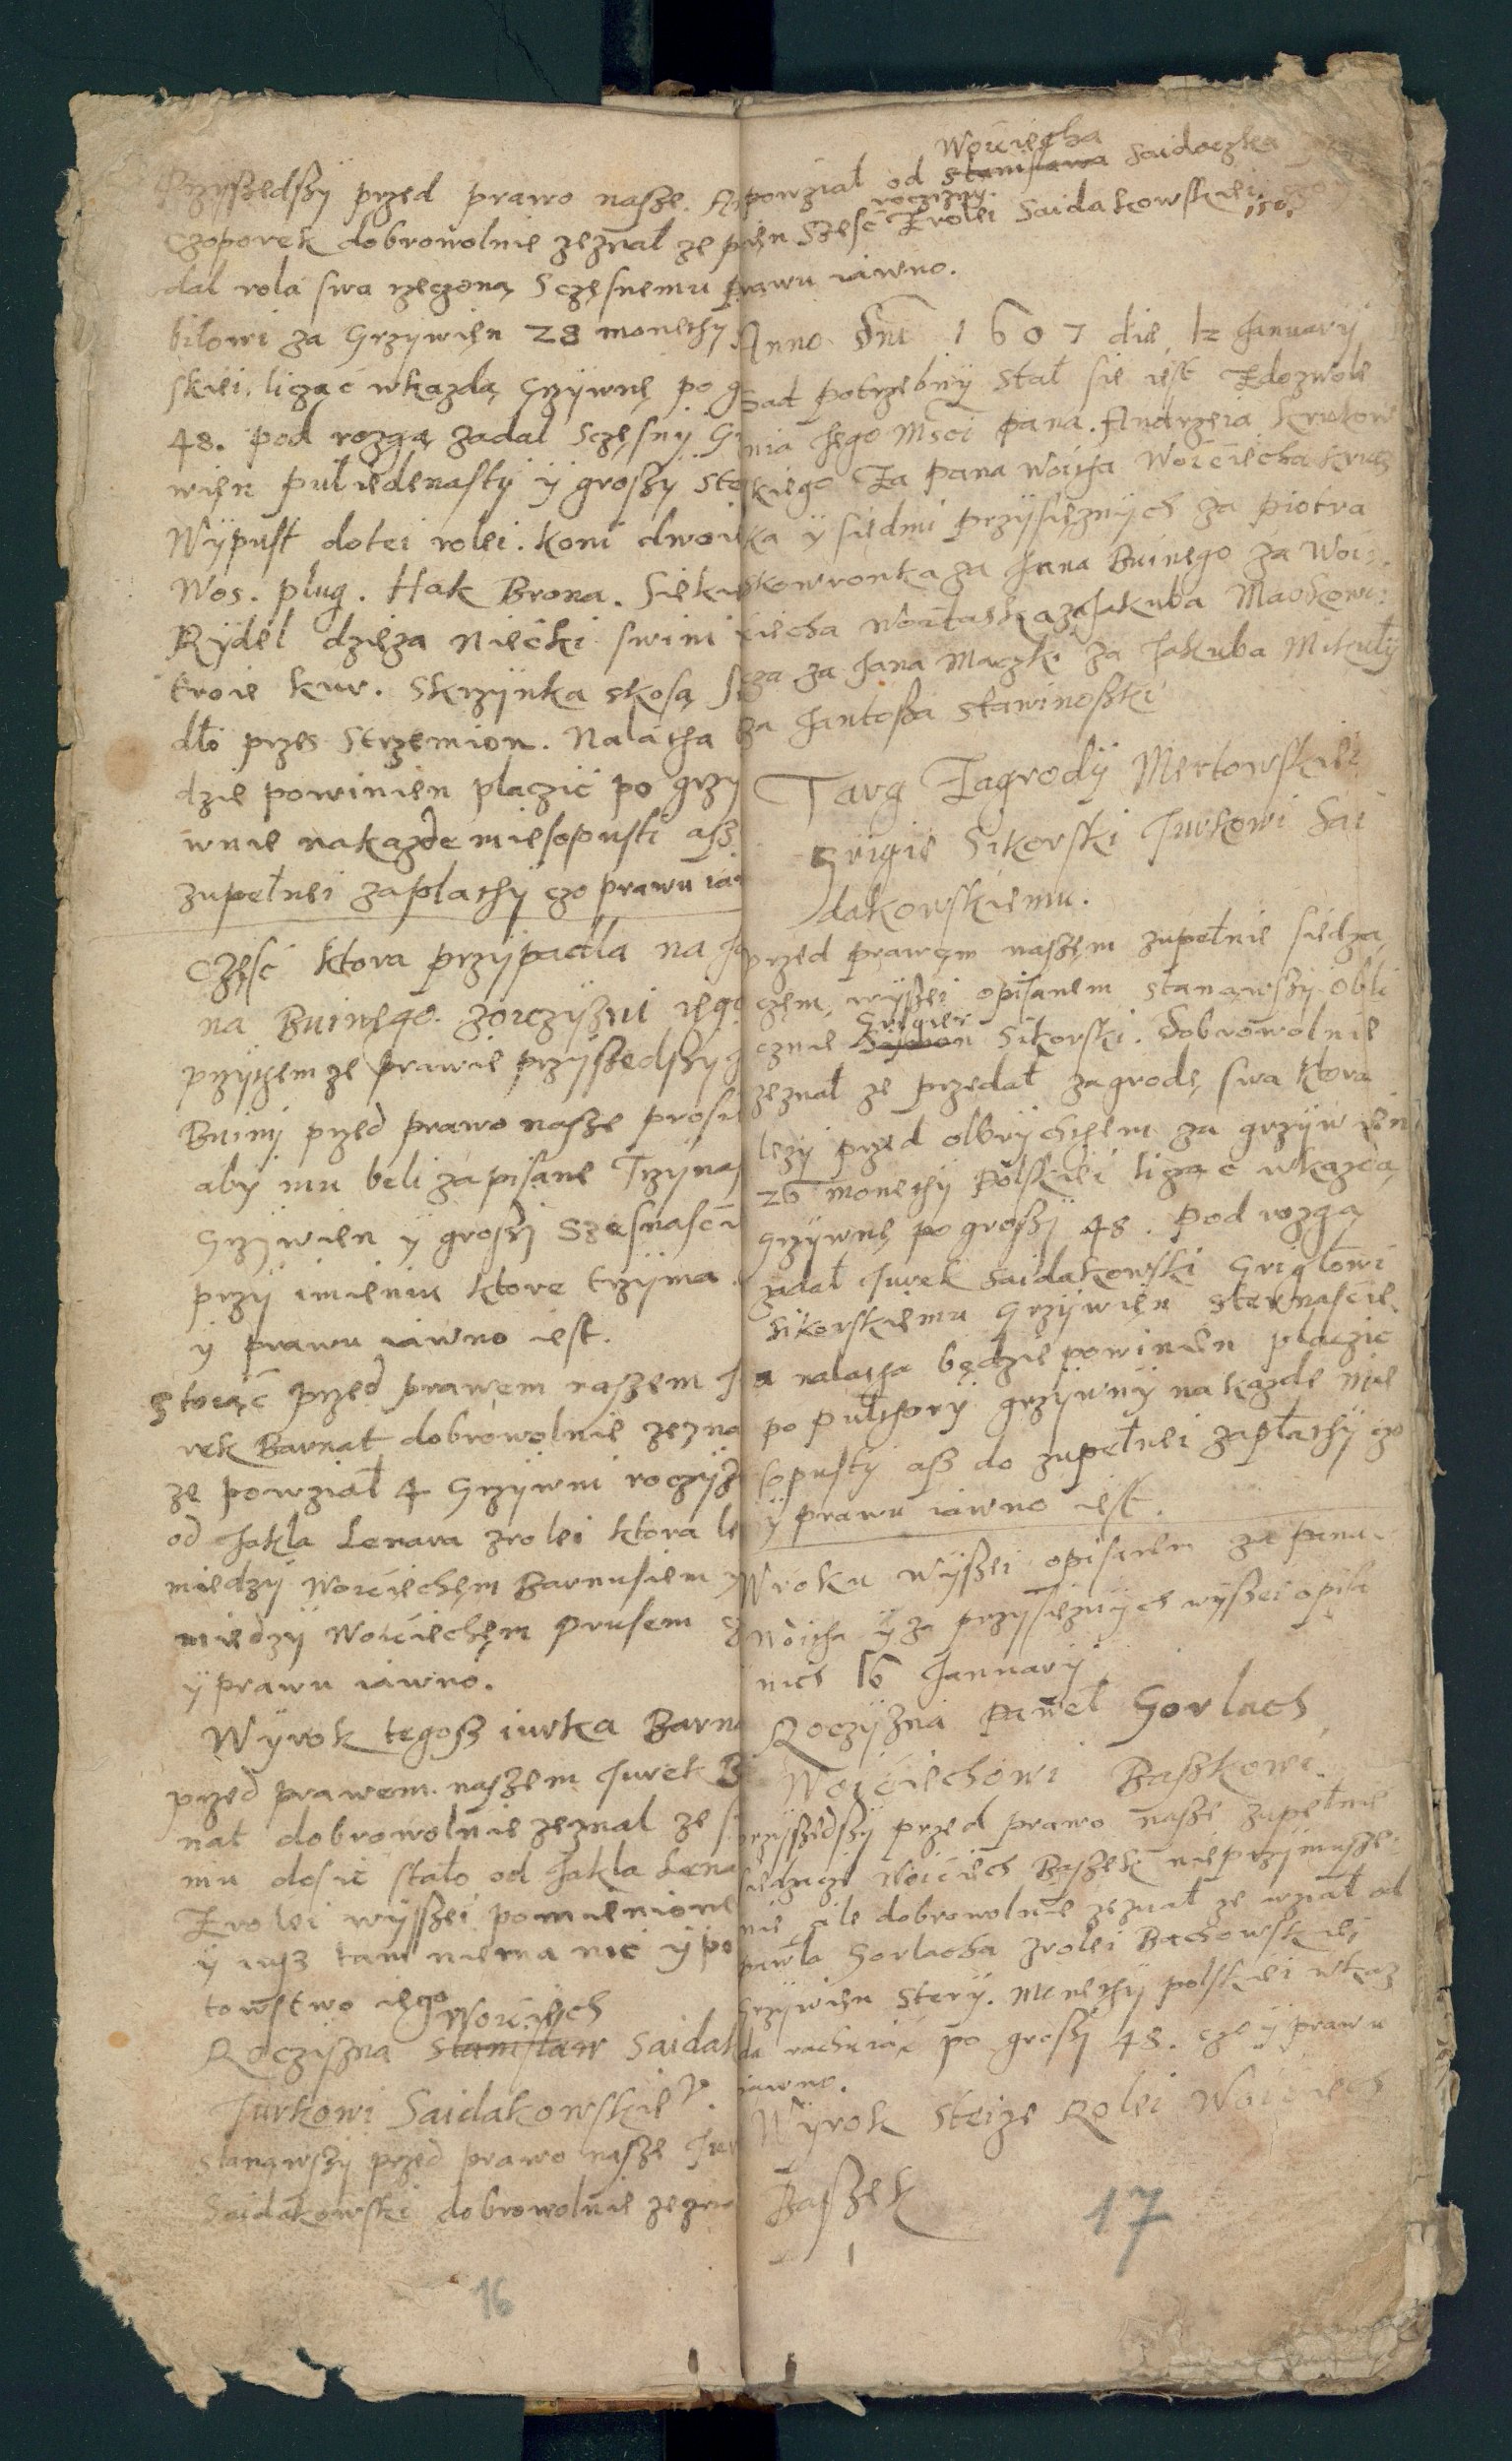 Przÿszedszÿ przed prawo nasze.
Czoporek dobrowolnie zeznał ze
dal rola swa rzeczoną Sczęsnemu
biłowi za Grzywien 28 monethÿ
skiei, licząc wkazdą Grzÿwnę po g
48. pod rozgą zadal Sczęsnÿ
wien pułiedenastÿ ÿ groszÿ
Wÿpust dotei rolei. koni dwoi
Wos. plug. Hak Brona. Sieki
Rÿdel dzięza Niećki swini
troie kur. Skrzÿnka skosą
dło przes Strzemion. Nalatha
dzie powinien placzić po grzy
wnie nakazde miesopusti asz
zupełnei zaplathÿ czo prawu
Część ktora przÿpadla na
na Buinęgo. zoiczÿzni iego
przÿthem ze prawie przÿszedszÿ
Buinÿ przed prawo nasze prosi
abÿ mu beli zapisane Trzÿnas
Grzÿwien ÿ groszÿ Szesnasci
przÿ imieniu ktore trzÿma
ÿ prawu iawno iest.
Stoiąć przed prawem naszem
rek Barnat dobrowolnie zezna
ze powział 4 Grzÿwni roczÿz
od Jakla Lenara zrolei ktora le
miedzÿ Woiciechem Barnusiem
miedzÿ Woiciechęm Prusem
ÿ prawu iawno.
Wÿrok tegosz iurka Barna
przed prawem naszem Jurek B
nat dobrowolnie zeznal ze
mu dosić stało od Jakla Lena
Zrolei wÿszei pomienione
ÿ iusz tam niema nic ÿ po
towstwo iego
Woiciech
Roczizna Stanisław Saidak
Jurkowi Saidakowskie
stanąwszÿ przed prawo nasze Jur
Saidakowski dobrowolnie zezna
16
Woiciecha
powział od Stanisława Saidaczka
roczizny.
Szesć Zrolei Saidakowskiei
prawu iawno.
Anno Dni 1607 die 12 Januarÿ
Sad potrzebnÿ stał sie iest Zdozwole
nia Jego Msci Pana. Andrzeia Krukow
skiego Za pana Woitha Woiciecha Krucz
ka ÿ siedmi przÿsięznÿch za Piotra
Skowronka za Jana Buinego za Woi
ciecha Woitaska za Jakuba Maćkowi
cza za Jana Maczki za Jakuba Mikułÿ
za Jantosza Stawinoszki
Targ Zagrodÿ Mertowskiei
Grigie Sikorski Jurkowi Sai
dakowskiemu.
przed prawęm naszęm zupełnie siedzą
czem, wÿszei opisanem stanąwszÿ obli
Grigier
cznie Sikorski. Dobrowolnie
zeznał ze przedał zagrodę swa ktora
lezÿ przed olbrÿchtem za grzÿwien
26 monethÿ Polskiei licząc wkazdą
Grzÿwnę po groszÿ 48. Pod rozgą
zadał Jurek Saidakowski Griglowi
Sikorskiemu Grzÿwien sternascie
a nalatha będzie powinien placzic
po pułthorÿ grzÿwnÿ na kazde mie
sopustÿ asz do zupełnei zapłathÿ czo
ÿ prawu iawno iest.
Wroku wÿszei opisanem za pana
Woitha ÿ za przÿsieznÿch wÿszei opisa
nich 16 Januarÿ
Roczÿzna Paweł Gorlach
Woiciechowi Baszkowi
przÿszedszÿ przed prawo nasze zupełnie
siedzące Woiciech Baszek nieprzÿmusze
nie, ale dobrowolnie zeznał ze wział od
Pawla Gorlacha zrolei Bachowskiei
Grzÿwien sterÿ. Monethÿ polskiei wkaz
da rachuiąc po groszÿ 48. czo ÿ prawu
iawno.
Wÿrok Steize Rolei Woiciech
Baszek
17